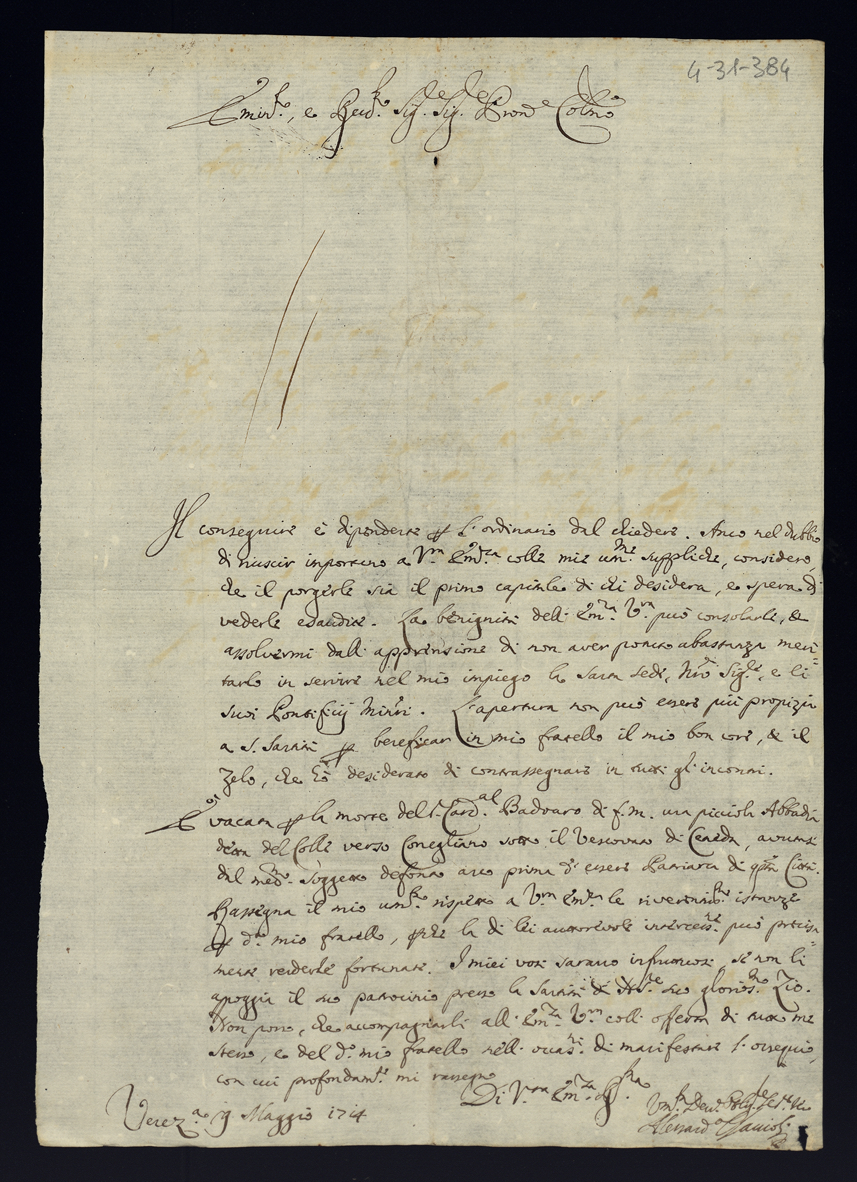 4-31-384
Emin.mo, e Rev.mo Sig.re Sig.re Pron.e Col.mo
Il conseguire è dipendente p l'ordinario dal chiedere. Anco nel dubbio
di riuscir importuno a V.ra Em.za colle mie um.me suppliche, considero,
che il porgerle sia il primo capitale di chi desidera, e spera di
vederle esaudite. La benignità dell'Em.za V.ra può consolarle, &
assolvermi dall'apprensione di non aver potuto abastanza meri=
tarlo in servire nel mio impiego la Santa Sede, Nro Sig.re, e li
suoi Pontificij Minri. L'apertura non può essere più propizia
a S. Santità p beneficar in mio fratello il mio bon core, & il
zelo, che hò desiderato di contrassegnare in tutti gl'incontri.
È vacata p la morte del S. Card.al Badoaro di f. m. una picciola Abbadia
detta del Colle verso Conegliano sotto il Vescovato di Ceneda,
dal med.mo Soggetto defonto anco prima d'essere Patriarca di q.sta Città.
Rassegna il mio um.mo rispetto a V.ra Em.za le riverentis.me istanze
p d.to mio fratello, la di lei autorevole interces.ne può precisa=
mente renderle fortunate. I miei voti sarano infruttuosi, se non li
apoggia il suo patrocinio presso la Santità di N.S.re suo glorios.mo Zio.
Non posso, che accompagnarli all'Em.za V.ra coll'offerta di tutto me
stesso, e del d.to mio fratello nell'occas.ni di manifestare l'ossequio,
con cui profondam.te mi rassegno
Di V.ra Em.za R.ma
Venez.a 19 Maggio 1714
Um.mo Dev.mo Oblig.mo Ser.re